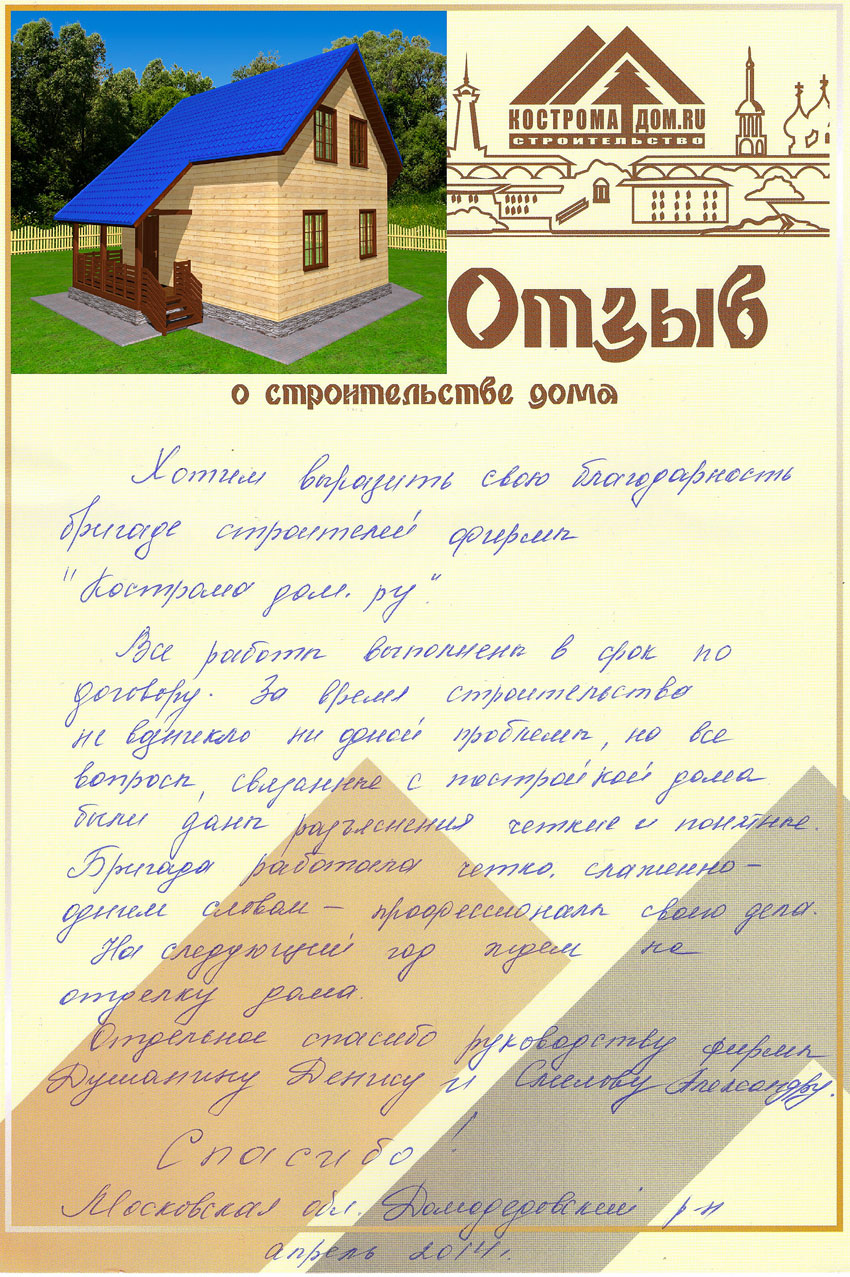 КОСТРОМА ДОМ.RU
СТРОИТЕЛЬСТВО
Отзыв
о строительстве дома
Хотим выразить свою благодарность
бригаде строителей фирмы
"Кострома дом. ру".
Все работы выполнены в срок по
договору. За время строительства
не возникло ни одной проблемы, на все
вопросы, связанные с постройкой дома
были даны разъяснения четкие и понятные.
Бригада работала четко, слаженно -
одним словом - профессионалы своего дела.
На следующий год ждем на
отделку дома.
Отдельное спасибо руководству фирмы
Душанину Денису и Смелову Александру.
Спасибо!
Московская обл. Домодедовский р-н
апрель 2014г.